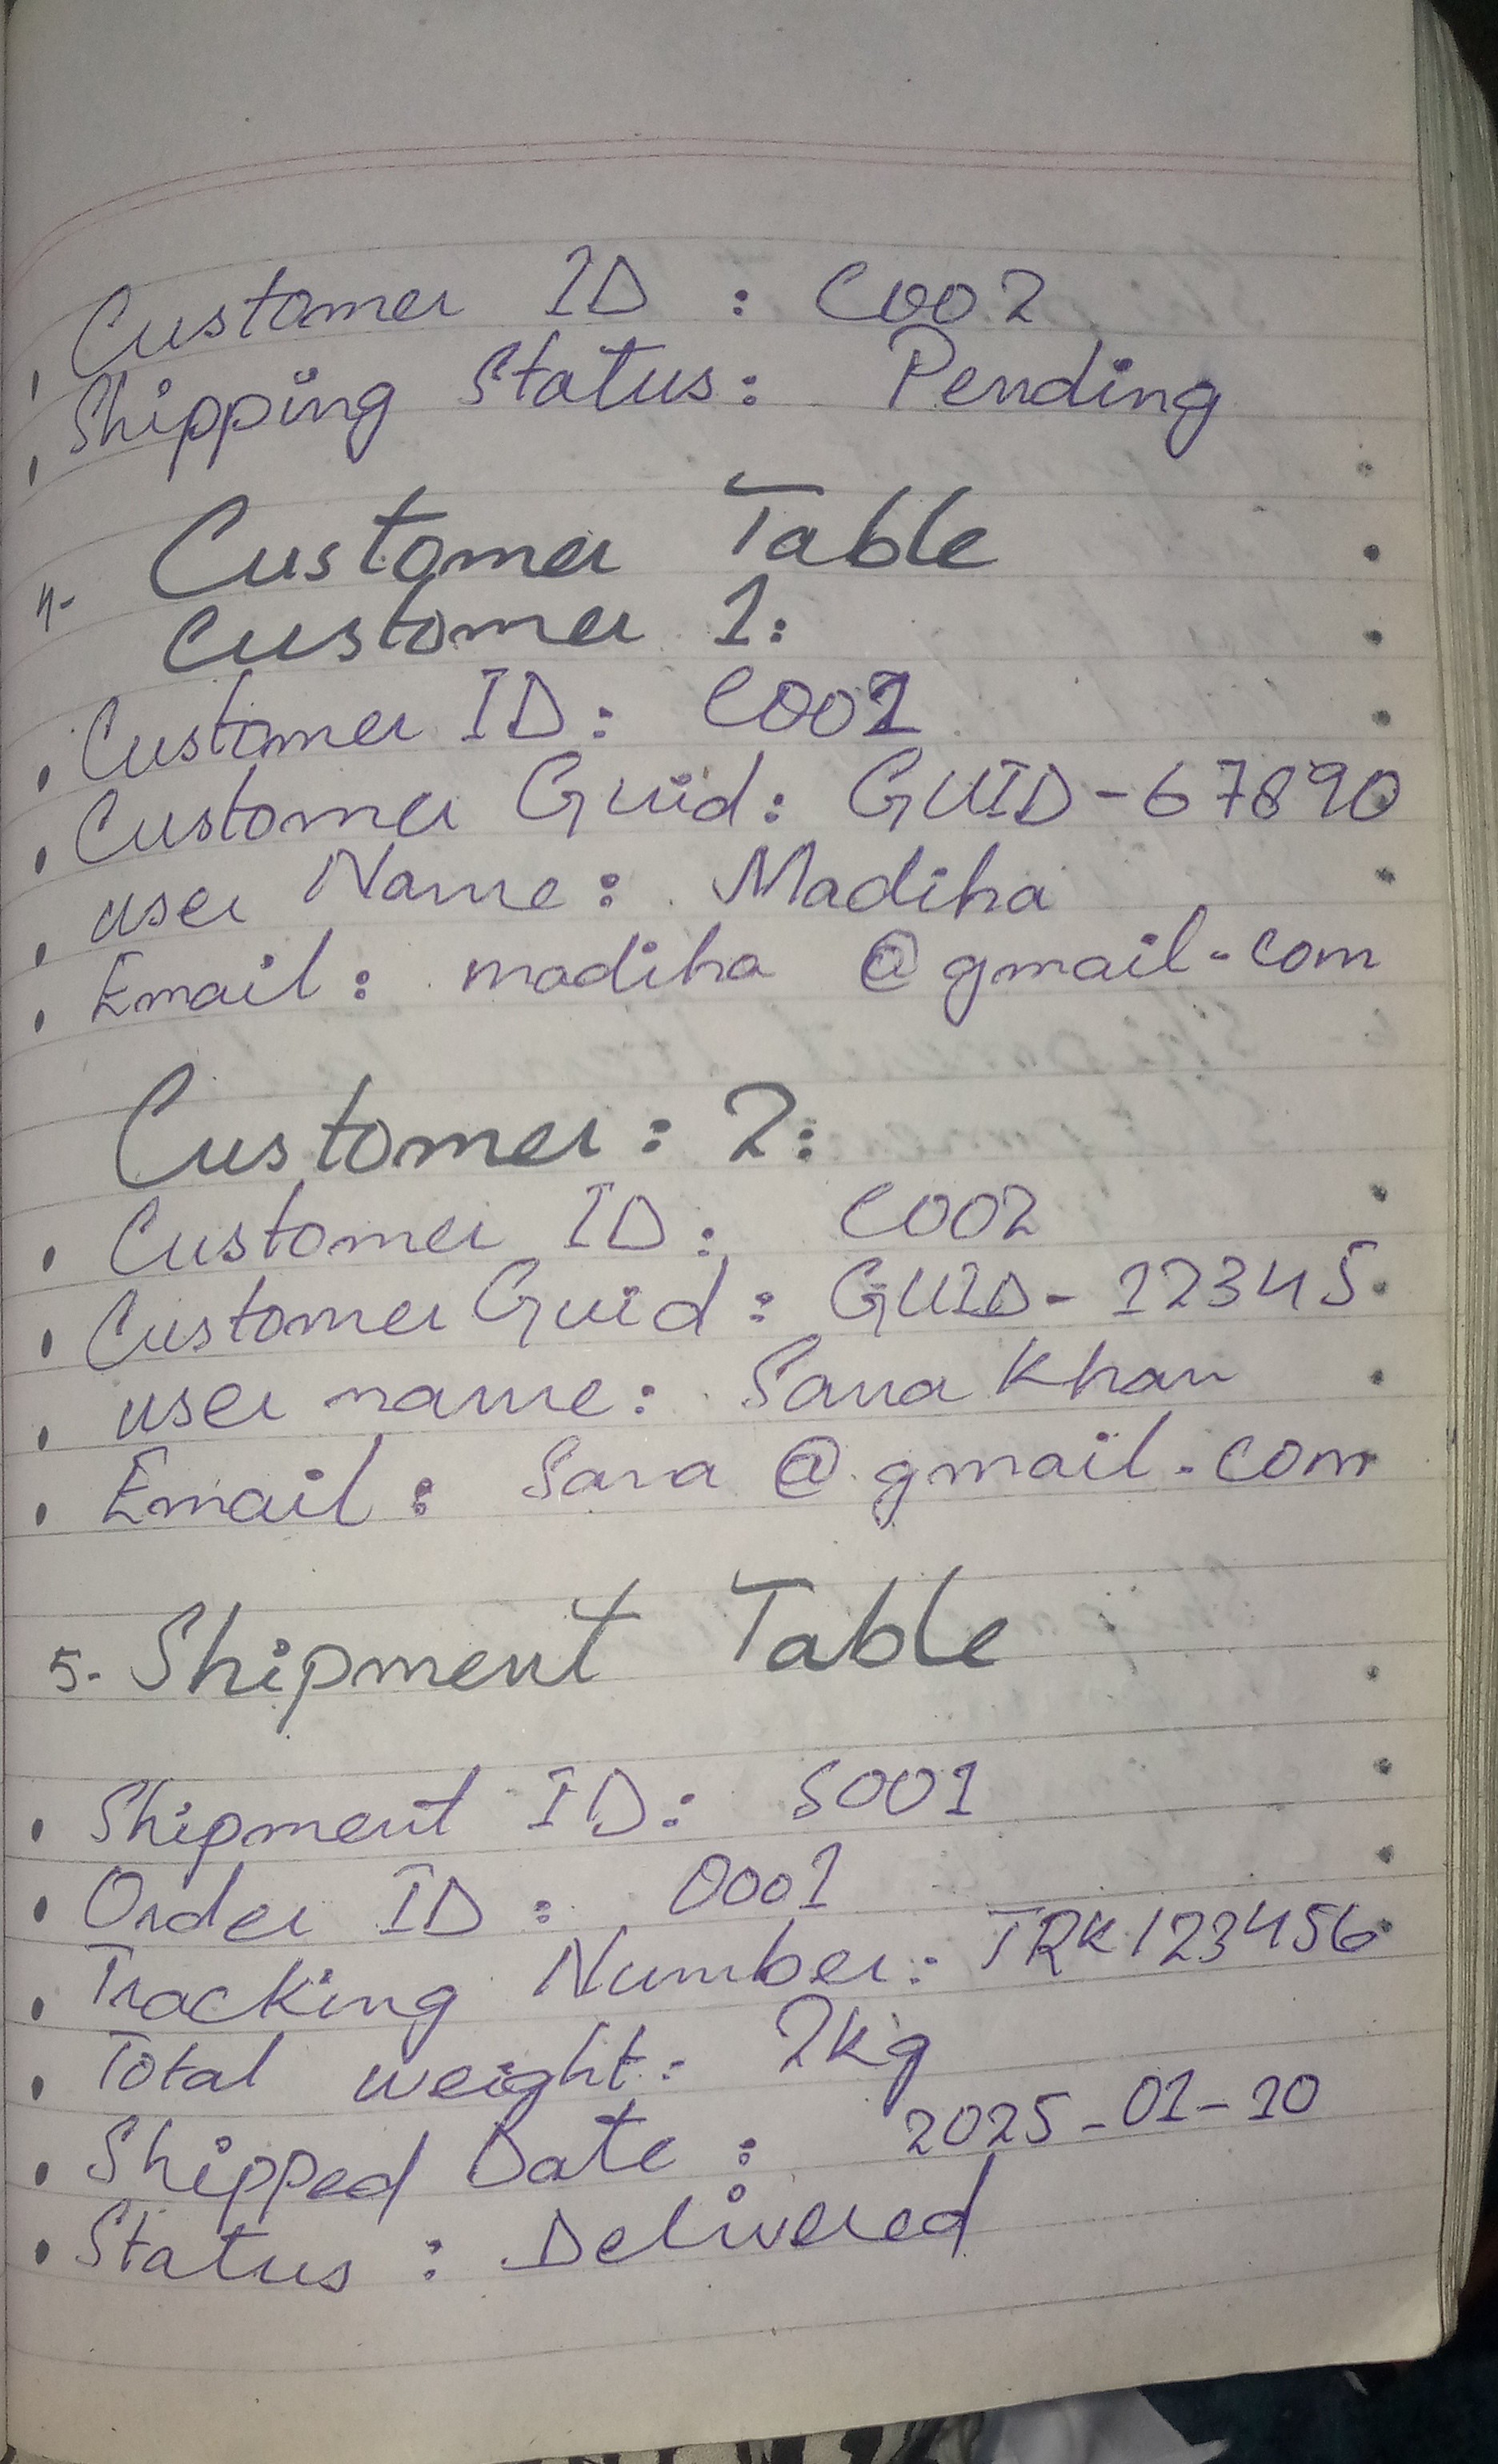 Customer ID : C002
Shipping Status: Pending
4. Customer Table
Customer 1:
. Customer ID: C001
. Customer Guid: GUID-67890
. user Name: Madiha
. Email: madiha @gmail.com
Customer: 2:
. Customer ID: C002
. Customer Guid: GUID-12345
. user name: Sara Khan
. Email: Sara @gmail.com
5. Shipment Table
. Shipment ID: S001
. Order ID: O001
. Tracking Number: TRK123456
. Total weight: 2kg
. Shipped Date: 2025-01-10
. Status: Delivered